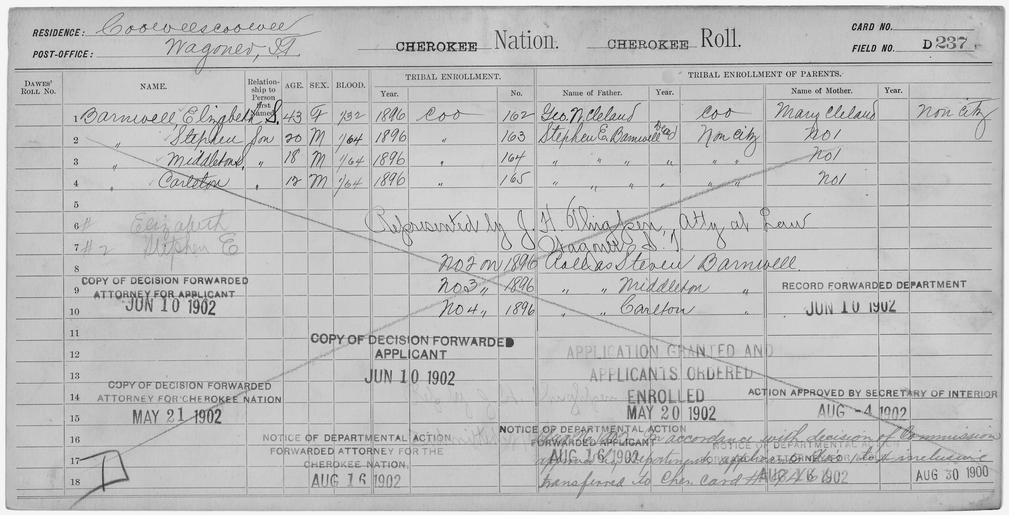 RESIDENCE: Cooweescoowee
POST-OFFICE: Wagoner, I.T.
CHEROKEE Nation. CHEROKEE Roll.
CARD NO.
FIELD NO. D 237
DAWES' ROLL NO. NAME. Relationship to Person first Named AGE. SEX. BLOOD. TRIBAL ENROLLMENT. Year. No. TRIBAL ENROLLMENT OF PARENTS. Name of Father. Year. Name of Mother. Year.
1 Barnwell Elizabeth S. 43 F 1/32 1896 Coo 162 Geo. N. Cleland Coo Mary Cleland Non City
2 " Stephen Son 20 M 1/64 1896 " 163 Stephen E. Barnwell Dead Non City No1
3 " Middleton " 18 M 1/64 1896 " 164 " " " " " No1
4 " Carleton " 12 M 1/64 1896 " 165 " " " " " No1
5
6 # Elizabeth Represented by J. H. Atty at Law
7 #2 Stephen E Wagoner I.T.
8 No2 on 1896 Roll as Steven Barnwell.
9 No3 " 1896 " " Middleton "
10 No4 " 1896 " " Carleton "
COPY OF DECISION FORWARDED
ATTORNEY FOR APPLICANT
JUN 10 1902
RECORD FORWARDED DEPARTMENT
JUN 10 1902
11
12
13
14
15
COPY OF DECISION FORWARDED
APPLICANT
JUN 10 1902
APPLICATION GRANTED AND
APPLICANTS ORDERED
ENROLLED
MAY 20 1902
COPY OF DECISION FORWARDED
ATTORNEY FOR CHEROKEE NATION
MAY 21 1902
ACTION APPROVED BY SECRETARY OF INTERIOR
AUG -4 1902
16
17
18
NOTICE OF DEPARTMENTAL ACTION
FORWARDED ATTORNEY FOR THE
CHEROKEE NATION.
AUG 16 1902
NOTICE OF DEPARTMENTAL ACTION
FORWARDED APPLICANT
AUG 16 1902
NOTICE OF DEPARTMENTAL ACTION
FORWARDED ATTORNEY FOR
AUG 16 1902
in accordance with decision of Commission
approved by Department, applicants 1 to 4 inclusive
transferred to Cher. Card #
AUG 30 1900
D